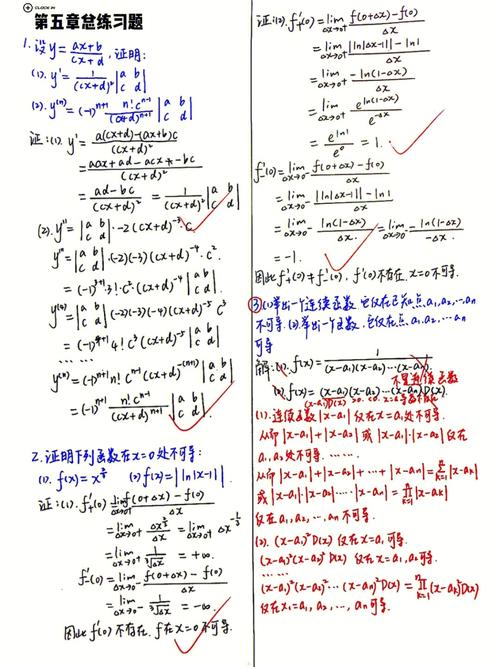 CLOCK IN
第五章总练习题
1. 设 y = \frac{ax+b}{cx+d}, 证明:
(1). y' = \frac{1}{(cx+d)^2} \begin{vmatrix} a & b \\ c & d \end{vmatrix}
(2). y^{(n)} = (-1)^{n+1} \frac{n! c^{n-1}}{(cx+d)^{n+1}} \begin{vmatrix} a & b \\ c & d \end{vmatrix}
证: (1). y' = \frac{a(cx+d)-(ax+b)c}{(cx+d)^2}
= \frac{acx+ad-acx-bc}{(cx+d)^2}
= \frac{ad-bc}{(cx+d)^2} = \frac{1}{(cx+d)^2} \begin{vmatrix} a & b \\ c & d \end{vmatrix}
(2). y'' = \begin{vmatrix} a & b \\ c & d \end{vmatrix} \cdot -2(cx+d)^{-3} \cdot c
y''' = \begin{vmatrix} a & b \\ c & d \end{vmatrix} \cdot (-2)(-3)(cx+d)^{-4} \cdot c^2.
= (-1)^{3+1} 3! c^2 (cx+d)^{-4} \begin{vmatrix} a & b \\ c & d \end{vmatrix}
y^{(4)} = \begin{vmatrix} a & b \\ c & d \end{vmatrix} (-2)(-3)(-4)(cx+d)^{-5} c^3
= (-1)^{4+1} 4! c^3 (cx+d)^{-5} \begin{vmatrix} a & b \\ c & d \end{vmatrix}
……
y^{(n)} = (-1)^{n+1} n! c^{n-1} (cx+d)^{-(n+1)} \begin{vmatrix} a & b \\ c & d \end{vmatrix}
= (-1)^{n+1} \frac{n! c^{n-1}}{(cx+d)^{n+1}} \begin{vmatrix} a & b \\ c & d \end{vmatrix}
2. 证明下列函数在x=0处不可导:
(1). f(x) = x^{\frac{2}{3}} (2) f(x) = |ln|x-1||
证: (1). f'_+(0) = \lim_{Δx→0^+} \frac{f(0+Δx)-f(0)}{Δx}
= \lim_{Δx→0^+} \frac{Δx^{\frac{2}{3}}}{Δx} = \lim_{Δx→0^+} Δx^{-\frac{1}{3}}
= \lim_{Δx→0^+} \frac{1}{\sqrt[3]{Δx}} = +∞.
f'_-(0) = \lim_{Δx→0^-} \frac{f(0+Δx)-f(0)}{Δx}
= \lim_{Δx→0^-} \frac{1}{\sqrt[3]{Δx}} = -∞.
因此 f'(0) 不存在. f在x=0不可导.
证: (2). f'_+(0) = \lim_{Δx→0^+} \frac{f(0+Δx)-f(0)}{Δx}
= \lim_{Δx→0^+} \frac{|ln|Δx-1||-ln1}{Δx}
= \lim_{Δx→0^+} \frac{-ln(1-Δx)}{Δx}
= \lim_{Δx→0^+} \frac{e^{ln(1-Δx)}}{e^{-Δx}}
= \frac{e^{ln1}}{e^0} = 1.
f'_-(0) = \lim_{Δx→0^-} \frac{f(0+Δx)-f(0)}{Δx}
= \lim_{Δx→0^-} \frac{|ln|Δx-1||-ln1}{Δx}
= \lim_{Δx→0^-} \frac{ln(1-Δx)}{Δx} = \lim_{Δx→0^-} - \frac{ln(1-Δx)}{-Δx}
= -1.
因此 f'_+(0) ≠ f'_-(0), f'(0)不存在. x=0不可导.
③ (1)举出一个连续函数, 它仅在已知点 a_1, a_2, …, a_n
不可导. (2)举出一个函数, 它仅在点 a_1, a_2, … a_n
可导
解: (1). f(x) = \frac{1}{(x-a_1)(x-a_2)…(x-a_n)}
不是连续函数
(2). f(x) = (x-a_1)(x-a_2)…(x-a_n)D(x).
(1). 连续函数 |x-a_1| 仅在x=a_1处不可导.
从而 |x-a_1|+|x-a_2| 或 |x-a_1|·|x-a_2| 仅在
a_1, a_2 处不可导. ……
从而 |x-a_1|+|x-a_2|+…+|x-a_n| = \sum_{k=1}^{n} |x-a_k|
或 |x-a_1|·|x-a_2|…|x-a_n| = \prod_{k=1}^{n} |x-a_k|
仅在 a_1, a_2, … a_n 不可导.
(2). (x-a_1)^2 D(x) 仅在x=a_1可导.
(x-a_1)^2(x-a_2)^2 D(x) 仅在x=a_1, a_2可导.
……
(x-a_1)^2(x-a_2)^2…(x-a_n)^2 D(x) = \prod_{k=1}^{n} (x-a_k)^2 D(x)
仅在x=a_1, a_2, …, a_n可导.